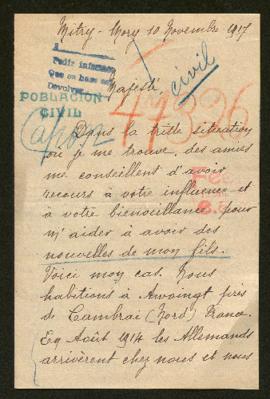 Mitry-Mory 10 Novembre 1917
Pedir informes
Que en base
Devolver
Majesté,
civil
POBLACION
CIVIL
47326
Dans la triste situation
où je me trouve, des amis
me conseillent d'avoir
recours à votre influence et
à votre bienveillance pour
m'aider à avoir des
nouvelles de mon fils.
Voici mon cas. Nous
habitions à Awoingt près
de Cambrai (Nord) France.
En Août 1914 les Allemands
arrivèrent chez nous et nous